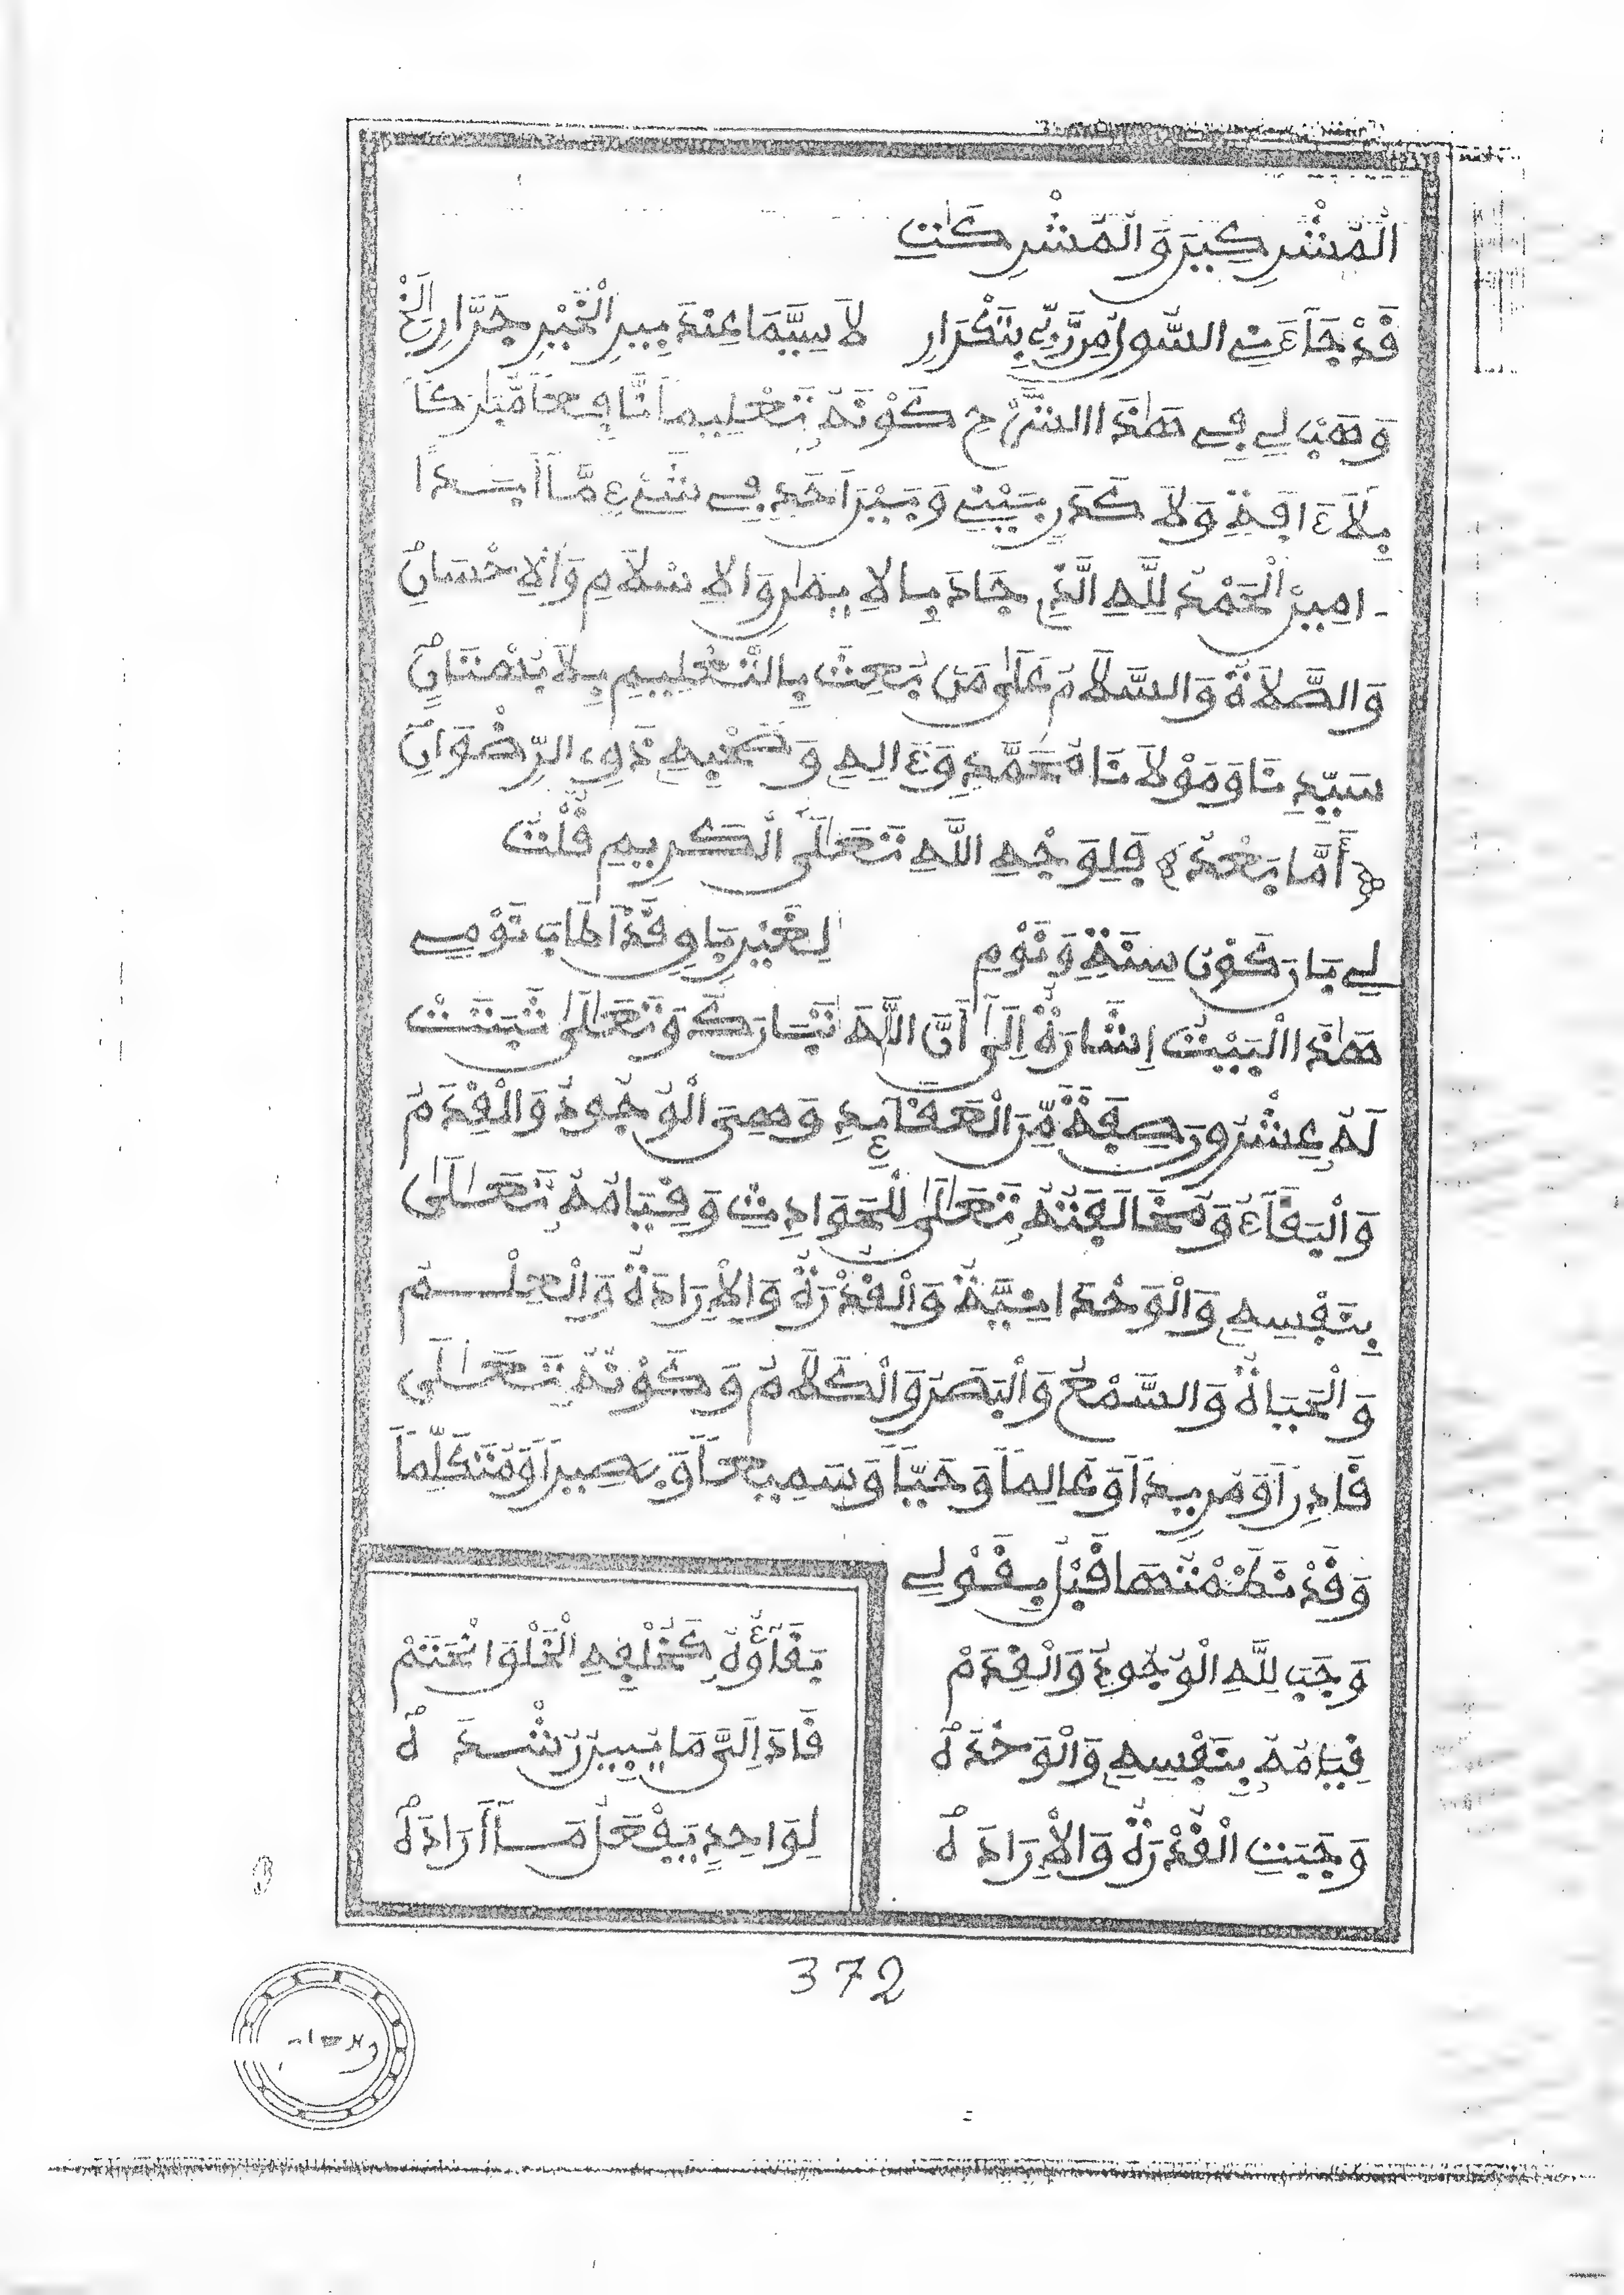 الْمُشْرِكِينَ وَالْمُشْرِكَاتِ
قَدْ جَآءَنِي السُّولُ مِن رَّبِّي بِتَكْرَارِ لَا سِيَّمَا عِنْدَ بِيرِ الْخَيْرِ جَرَّارِ الخ
وَهَبْ لِي فِي هَٰذَا الشَّرْحِ كَوْنَهُ تَعْلِيماً نَّافِعاً مُّبَارَكاً
بِلَا ءَافَةٍ وَلَا كَدَرٍ بَيْنِي وَبَيْنَ أَحَدٍ فِي شَيْءٍ مَّا أَبَداً
ـامِينْ الْحَمْدُ لِلَّهِ الَّذِي جَادَ بِالِايمَٰنِ وَالِاسْلَامِ وَالِاحْسَانِ
وَالصَّلَاةُ وَالسَّلَامُ عَلَىٰ مَن بُعِثَ بِالتَّعْلِيمِ بِلَا بُهْتَانٍ
سَيِّدِنَا وَمَوْلَانَا مُحَمَّدٍ وَءَالِهِ وَصَحْبِهِ ذَوِي الرِّضْوَانِ
﴿أَمَّا بَعْدُ﴾ فَلِوَجْهِ اللَّهِ تَعَالَى الْكَرِيمِ قُلْتُ
لِي بَارَكَ وَن سِنَةٍ وَنَوْمِ لِغَيْرِ بَاوٍ قَدْ أَطَابَ نَوْمِي
هَٰذَا الْبَيْتُ إِشَارَةٌ إِلَىٰ أَنَّ اللَّهَ تَبَارَكَ وَتَعَالَىٰ ثَبَتَتْ
لَهُ عِشْرُونَ صِفَةً مِّنَ الْعَقَآئِدِ وَهِيَ الْوُجُودُ وَالْقِدَمُ
وَالْبَقَآءُ وَمُخَالَفَتُهُ تَعَالَىٰ لِلْحَوَادِثِ وَقِيَامُهُ تَعَالَىٰ
بِنَفْسِهِ وَالْوَحْدَانِيَّةُ وَالْقُدْرَةُ وَالْإِرَادَةُ وَالْعِلْـــمُ
وَالْحَيَاةُ وَالسَّمْعُ وَالْبَصَرُ وَالْكَلَامُ وَكَوْنُهُ تَعَالَى
قَادِراً وَمُرِيداً وَعَالِماً وَحَيّاً وَسَمِيعاً وَبَصِيراً وَمُتَكَلِّماً
وَقَدْ نَظَمْتُهَا قَبْلُ بِقَوْلِي
وَجَبَ لِلَّهِ الْوُجُودُ وَالْقِدَمْ بَقَآؤُهُ كَخُلْفِهِ الْخَلْقَ انْحَتَمْ
قِيَامُهُ بِنَفْسِهِ وَالْوَحْدَهْ قَادَ إِلَى مَا يُبِينُ رُشْدَهْ
وَجَبَتِ الْقُدْرَةُ وَالْإِرَادَهْ لِوَاحِدٍ يَفْعَلُ مَا أَرَادَهْ
372